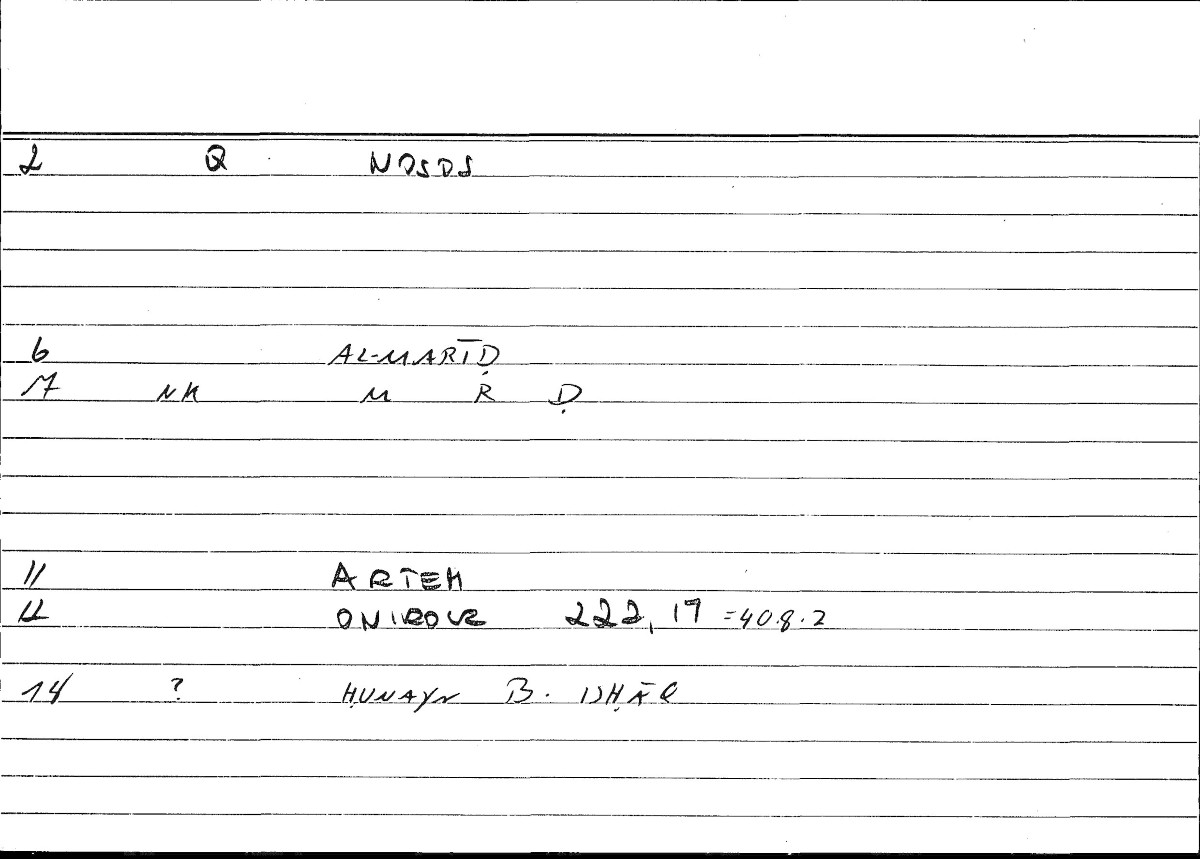 2 Q NOSOS
6 AL-MARĪḌ
7 NK M R Ḍ
11 ARTEM
12 ONIROCR 222,17 =408.2
14 ? ḤUNAYN B. ISḤĀQ